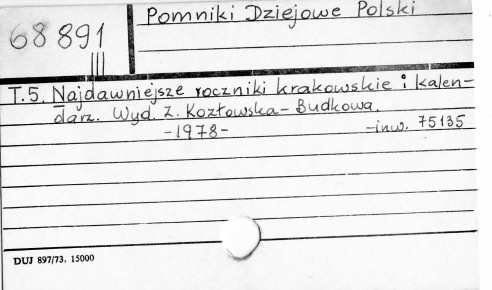 Pomniki Dziejowe Polski
68 891
T.5. Najdawniejsze roczniki krakowskie i kalen-
darz. Wyd. Z. Kozłowska-Budkowa.
-1978-
-inw. 75135
DUJ 897/73, 15000